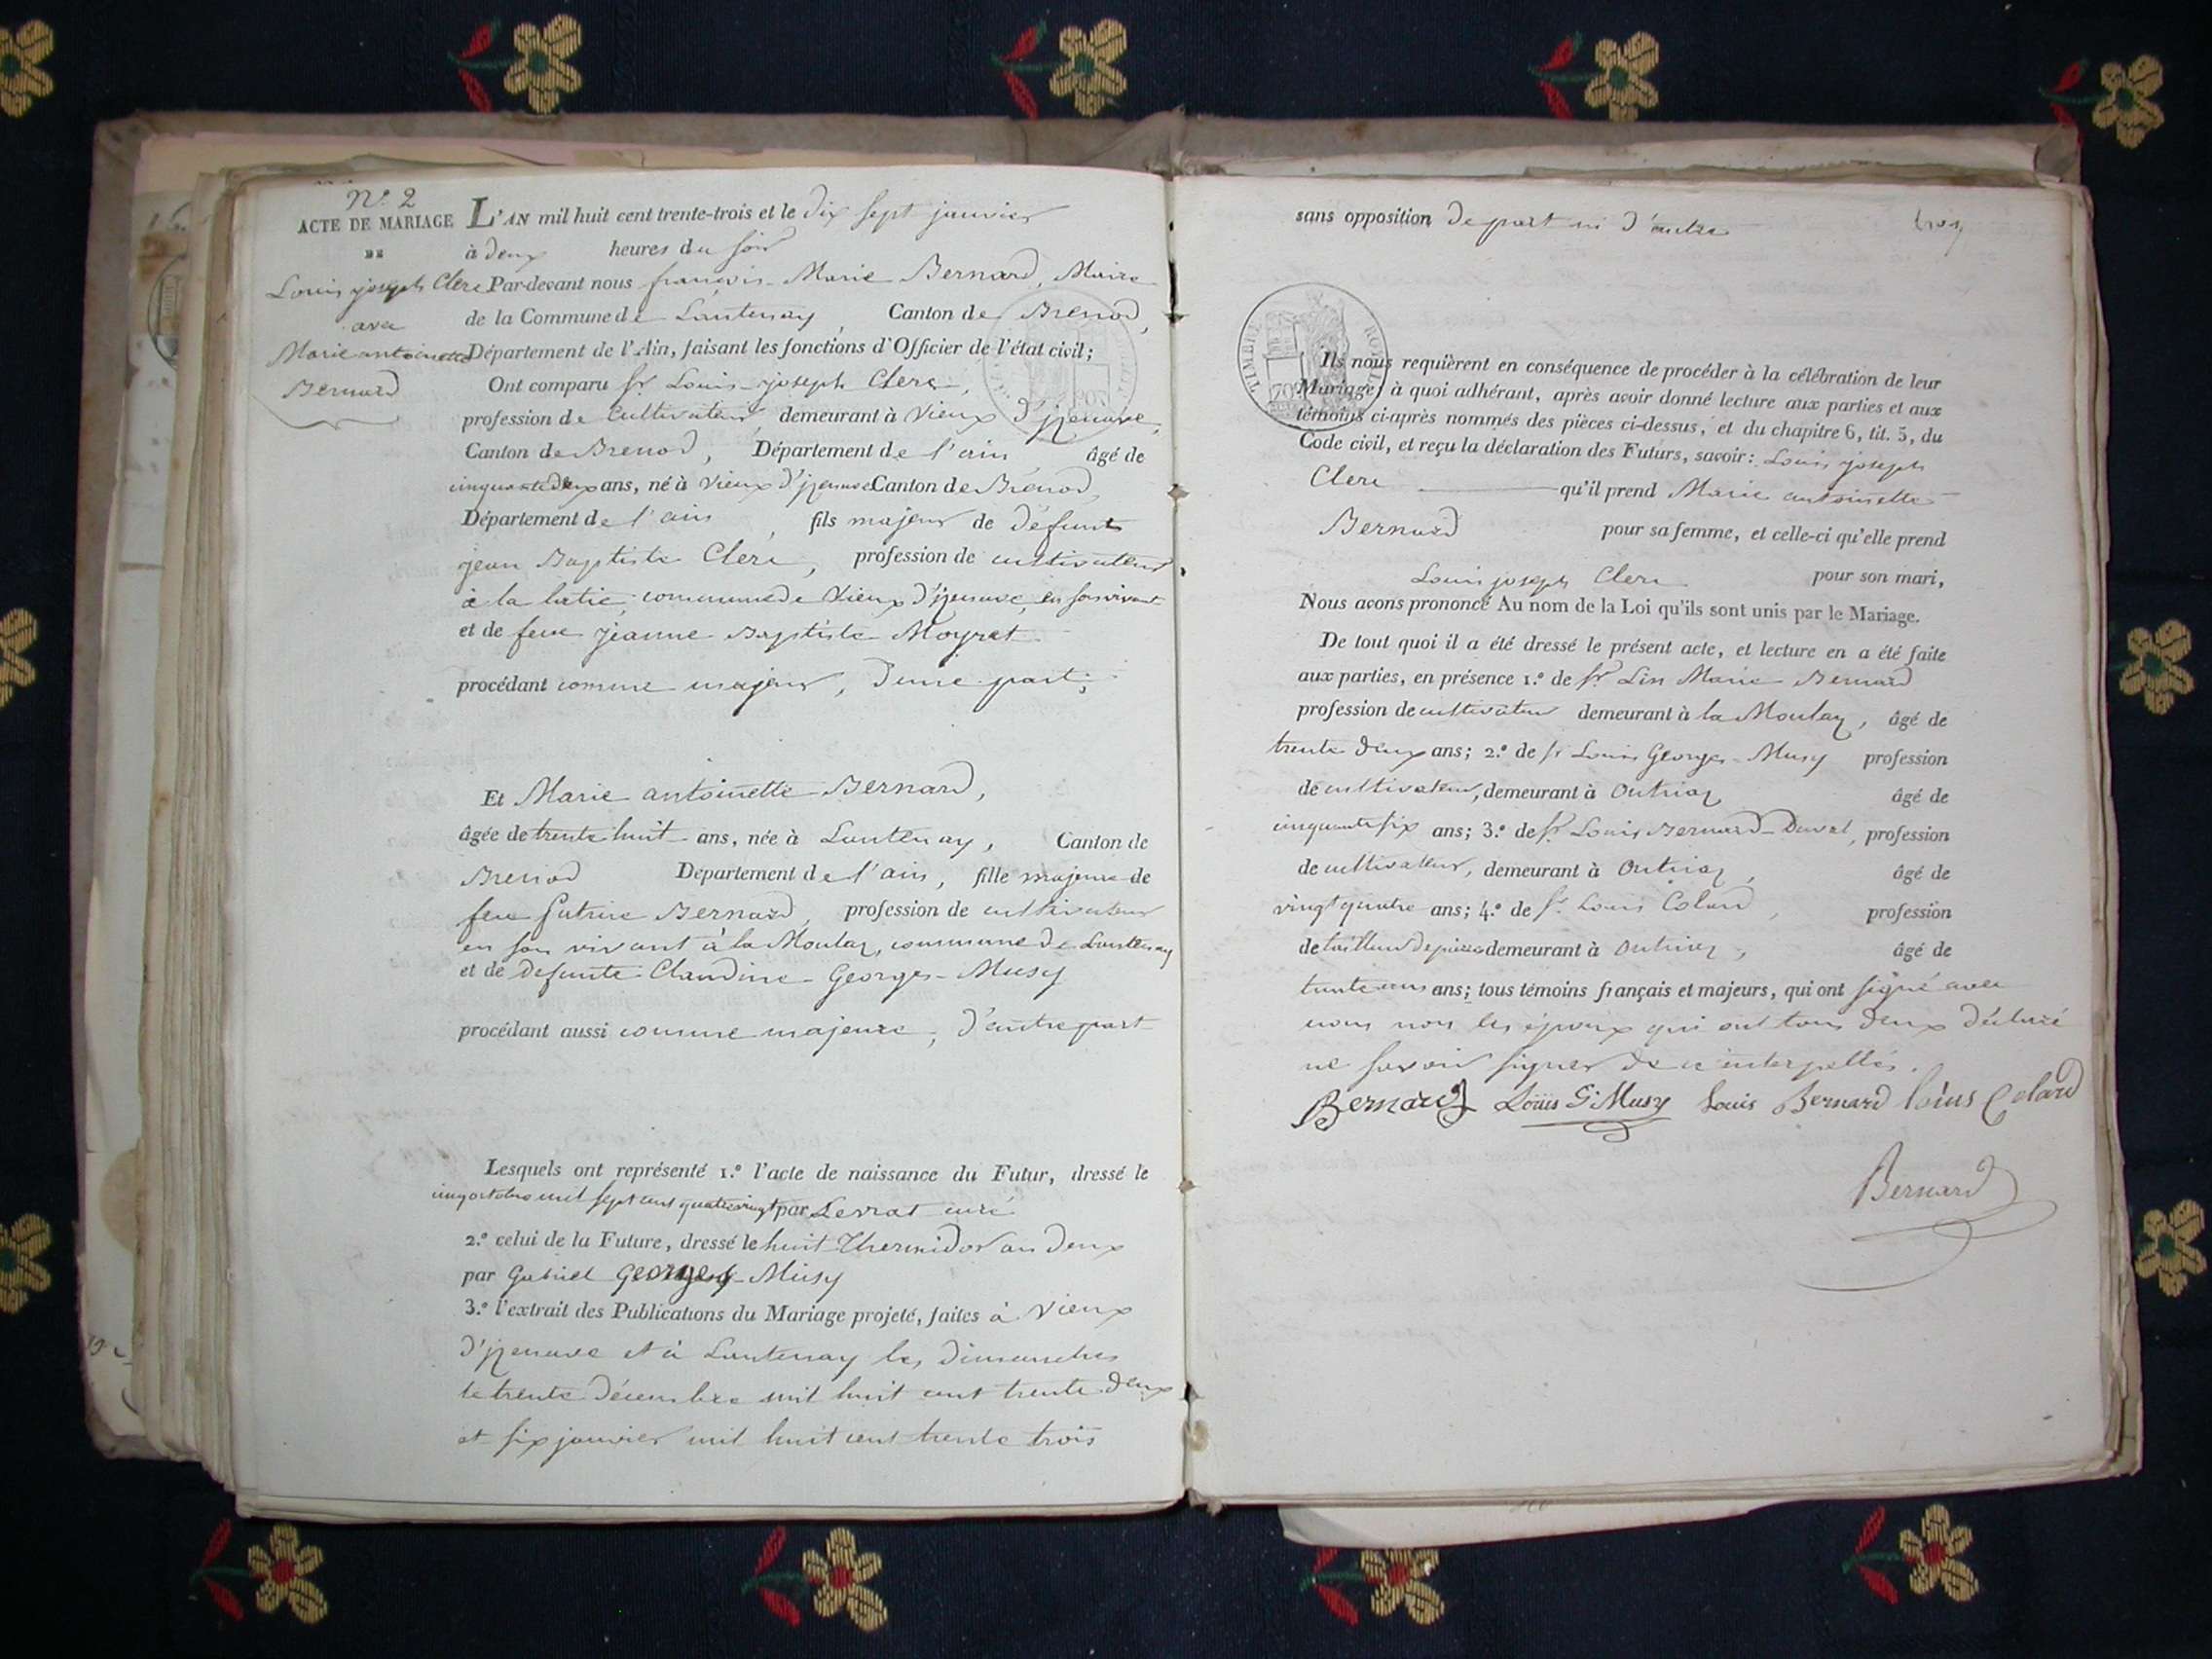 N.º 2
ACTE DE MARIAGE
DE
Louis joseph Clerc
avec
Marie antoinette
Bernard
L'AN mil huit cent trente-trois et le dix sept janvier
à deux heures du soir
Par-devant nous françois Marie Bernard, Maire
de la Commune de Lantenay, Canton de Brenod,
Département de l'Ain, faisant les fonctions d'Officier de l'état civil;
Ont comparu Sr. Louis-joseph Clerc,
profession de Cultivateur, demeurant à Vieux d'izenave,
Canton de Brenod, Département de l'ain âgé de
cinquante deux ans, né à Vieux d'izenave Canton de Brenod,
Département de l'ain, fils majeur de défunt
jean Baptiste Clerc, profession de cultivateur
à la latie, commune de Vieux d'izenave, en son vivant
et de feue jeanne Baptiste Moyret
procédant comme majeur, d'une part;
Et Marie antoinette Bernard,
âgée de trente huit ans, née à Lantenay, Canton de
Brenod Département de l'ain, fille majeure de
feu Bernard, profession de cultivateur
en son vivant à la Moulaz, commune de Lantenay
et de défunte Claudine Georges-Musy
procédant aussi comme majeure, d'autre part
Lesquels ont représenté 1.º l'acte de naissance du Futur, dressé le
cinq octobre mil sept cent quatre vingt par Levrat curé
2.º celui de la Future, dressé le huit Thermidor an deux
par Gabriel Georges-Musy
3.º l'extrait des Publications du Mariage projeté, faites à Vieux
d'izenave et à Lantenay les dimanches
le trente décembre mil huit cent trente deux
et six janvier mil huit cent trente trois
sans opposition de part ni d'autre
TIMBRE ROYAL
70
Ils nous requièrent en conséquence de procéder à la célébration de leur
Mariage; à quoi adhérant, après avoir donné lecture aux parties et aux
témoins ci-après nommés des pièces ci-dessus, et du chapitre 6, tit. 5, du
Code civil, et reçu la déclaration des Futurs, savoir: Louis joseph
Clerc qu'il prend Marie antoinette
Bernard pour sa femme, et celle-ci qu'elle prend
Louis joseph Clerc pour son mari,
Nous avons prononcé Au nom de la Loi qu'ils sont unis par le Mariage.
De tout quoi il a été dressé le présent acte, et lecture en a été faite
aux parties, en présence 1.º de Sr. Lin Marie Bernard
profession de cultivateur demeurant à la Moulaz, âgé de
trente deux ans; 2.º de Sr Louis Georges-Musy profession
de cultivateur, demeurant à Outriaz âgé de
cinquante six ans; 3.º de Sr. Louis Bernard-Daval, profession
de cultivateur, demeurant à Outriaz, âgé de
vingt quatre ans; 4.º de Sr. Louis Colard, profession
de tailleur de pierre demeurant à Outriaz, âgé de
trente ans; tous témoins français et majeurs, qui ont signé avec
nous non les époux qui ont tous deux déclaré
ne savoir signer de ce interpellés.
Bernard Louis G. Musy Louis Bernard louis Colard
Bernard